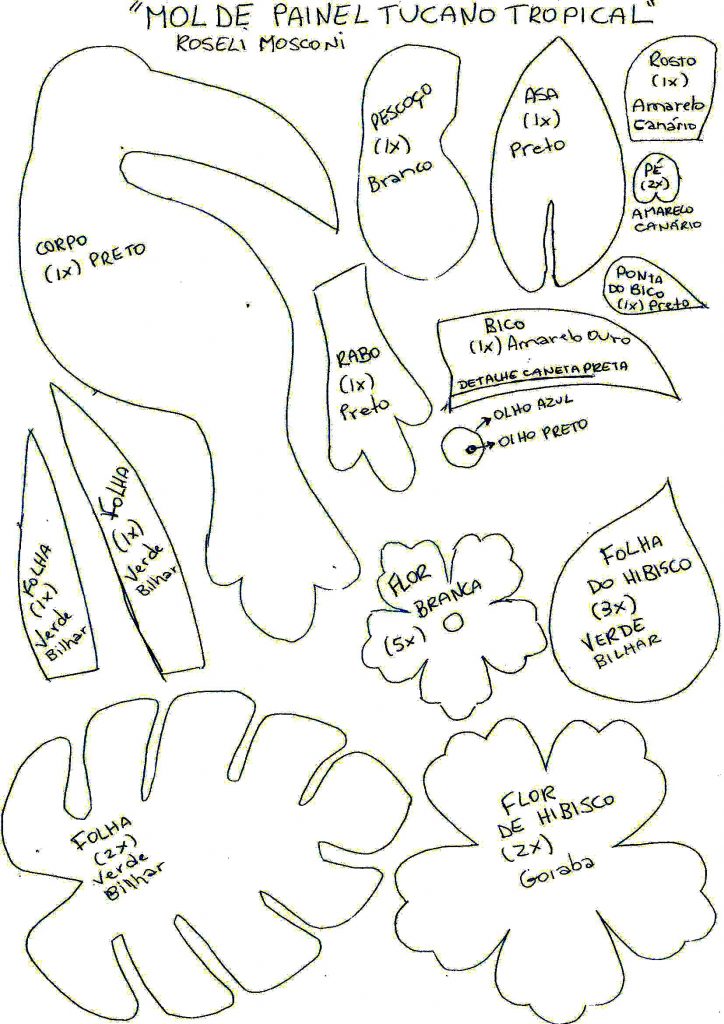 "MOLDE PAINEL TUCANO TROPICAL"
ROSELI MOSCONI
CORPO
(1x) PRETO
PESCOÇO
(1x)
Branco
ASA
(1x)
Preto
Rosto
(1x)
Amarelo
Canário
PÉ
(2x)
AMARELO
CANÁRIO
PONTA
DO BICO
(1x) Preto
RABO
(1x)
Preto
BICO
(1x) Amarelo Ouro
DETALHE CANETA PRETA
OLHO AZUL
OLHO PRETO
FOLHA
(1x)
Verde
Bilhar
FOLHA
(1x)
Verde
Bilhar
FLOR
BRANCA
(5x)
FOLHA
DO HIBISCO
(3x)
VERDE
BILHAR
FOLHA
(2x)
Verde
Bilhar
FLOR
DE HIBISCO
(2x)
Goiaba